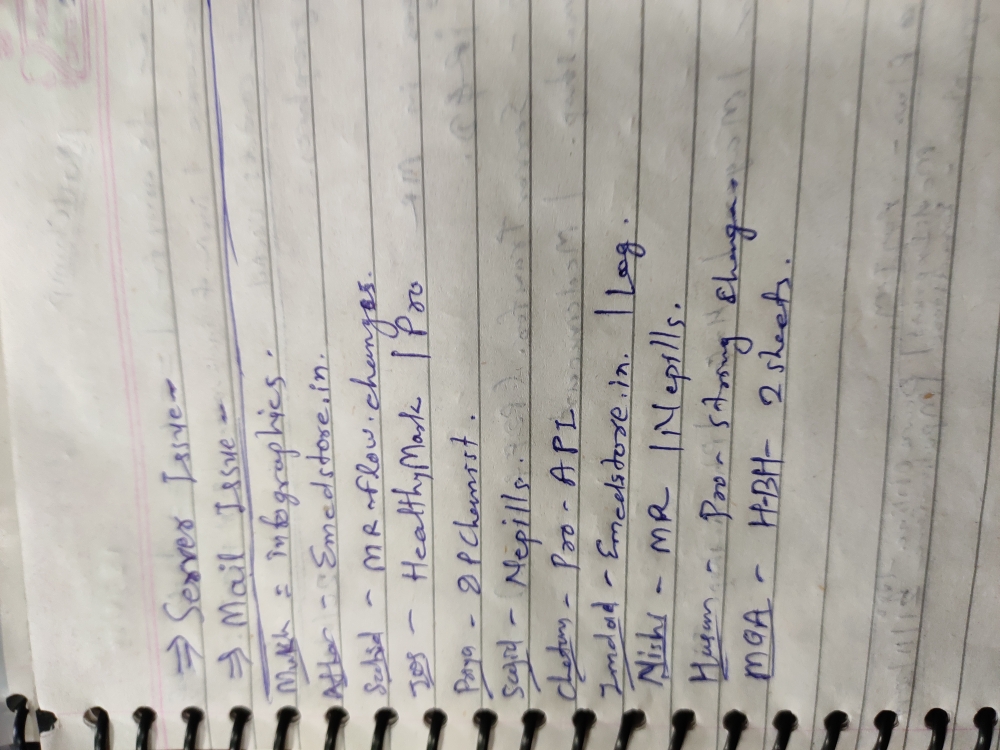 ⇒ Server Issue
⇒ Mail Issue
Mukh = infographics.
Athar - Emedstore.in.
Sachid - MR-flow.changes.
IOS - HealthyMark | Pro
Priya - 8PChemist.
Sajid - Nepills.
Chetan - Pro - API
Imdad - Emedstore.in. | Log.
Nishi - MR | Nepills.
Husain - Pro - string change
MQA - HBH - 2 sheets.